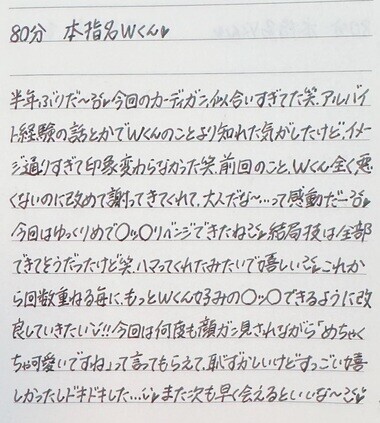 80分 本指名Wくん♥
半年ぶりだ〜♥今回のカーディガン似合いすぎてた笑、アルバイ
ト経験の話とかでWくんのことより知れた気がしたけど、イメー
ジ通りすぎて印象変わらなかった笑、前回のこと、Wくん全く悪
くないのに改めて謝ってきてくれて、大人だな〜…って感動だー♥
今回はゆっくりめで〇ッ〇リベンジできたね♥結局技は全部
できてそうだったけど笑、ハマってくれたみたいで嬉しい♥これか
ら回数重ねる毎に、もっとWくん好みの〇ッ〇できるように改
良していきたい!!今回は何度も顔ガン見されながら「めちゃく
ちゃ可愛いですね」って言ってもらえて、恥ずかしいけどすっごい嬉
しかったしドキドキした…また次も早く会えるといいな〜♥